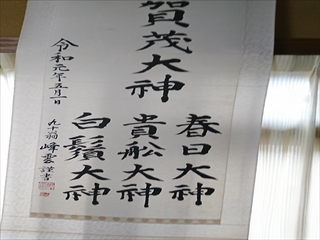 賀茂大神
春日大神
貴舩大神
白鬚大神
令和元年五月一日
九十翁 峰雲謹書